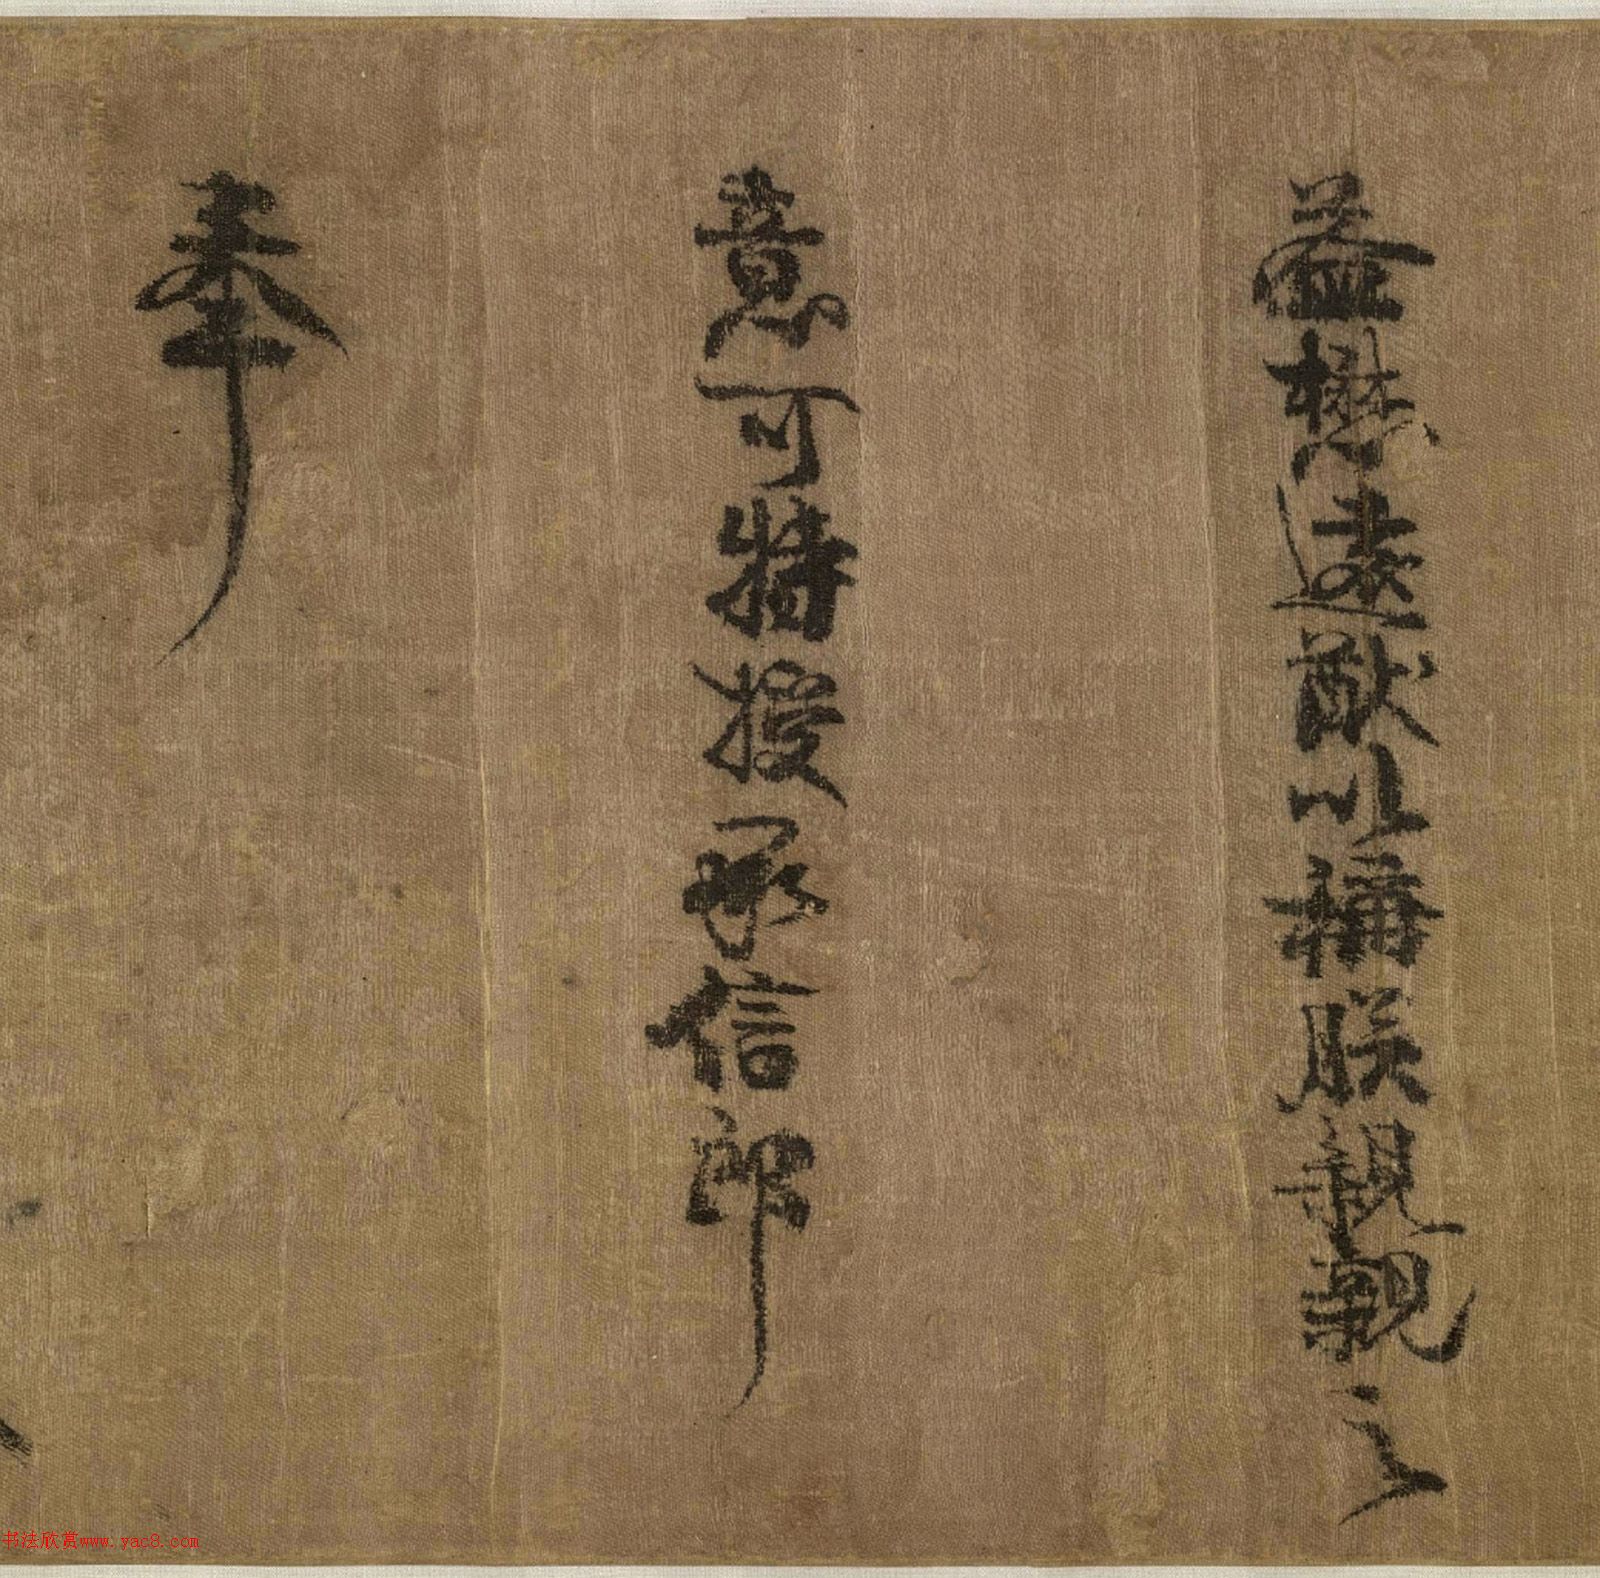 益懋遠猷以稱朕親親之
意可特授承信郎
奉
书法欣赏www.yac8.com